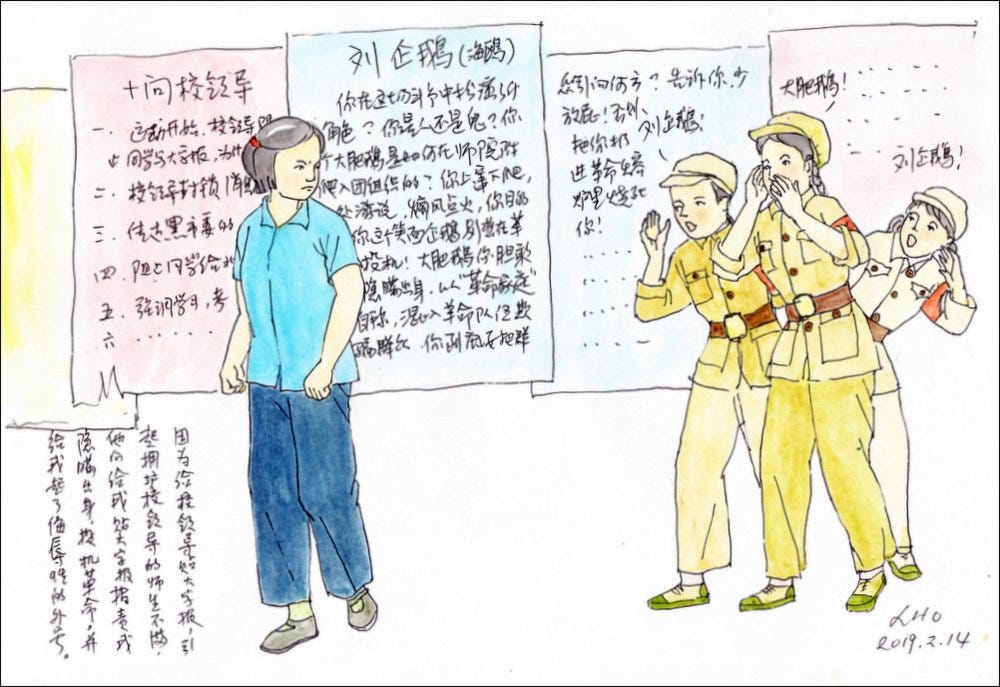 十问校领导
一. 运动开始，校领导
止同学写大字报，为什
二. 校领导封锁消息
三. 传达黑市委的
四. 阻止同学给
五. 强调学习，考
六 ······
刘企鹅(海鸥)
你在这场斗争中扮演什么
角色？你是人还是鬼？你
个大肥鹅是如何在师院附
爬入团组织的？你上窜下爬，
处游说，煽风点火，你目的
你这个笨而企鹅别想在革
投机！大肥鹅你胆敢
隐瞒出身，以"革命家庭"
自称，混入革命队伍欺
骗群众 你
您引向何方？告诉你，少
放屁！否则
把你扔
进革命熔
炉里烧死
你！
刘企鹅！
大肥鹅！
刘企鹅！
因为给校领导贴大字报，引
起拥护校领导的师生不满，
他们给我贴大字报指责我
隐瞒出身，投机革命，并
给我起了侮辱性的外号。
LHO
2019.2.14